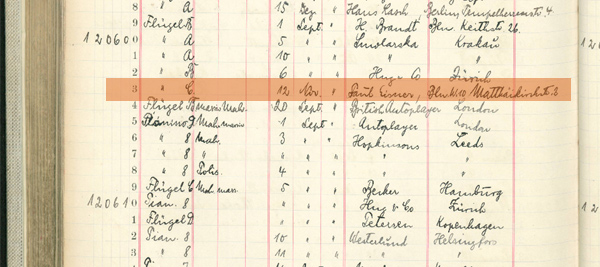 8 " A 15 Sep. " Hans Berlin, Tempelherrenstr. 4
9 Flügel B 1 Sept. " H. Brandt Bln. Keithstr. 26.
120600 " A 5 " " Smolarska Krakau
1 " A 10 " " " "
2 " B 6 " " Hug & Co Zürich
3 " C 12 Nov. " Eisner, Bln. W. 10 Matthäikirchstr. 8
4 Flügel B Mah. 20 Sept. " British Autoplayer London
5 Pianino D 1 Sept. " " Autoplayer London
6 " 8 Mah. 3 " " Hopkinsons Leeds
7 " 8 " " " " " "
8 " 8 Polis. 4 " " " "
9 Flügel C Mah. 5 " " Becker Hamburg
120610 Pian. 8 " " " Hug & Co Zürich
1 Flügel D " " " Petersen Kopenhagen
2 Pian. 8 10 " " Westerlund Helsingfors
3 " 8 11 " " " "